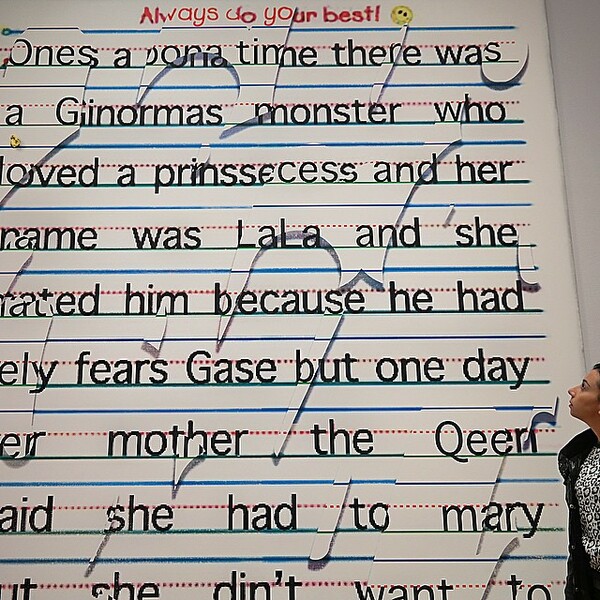 Always do your best!
Ones a pona time there was
a Ginormas monster who
loved a prinssecess and her
name was LaLa and she
hated him because he had
fears Gase but one day
mother the Qeen
said she had to mary
she din't want to